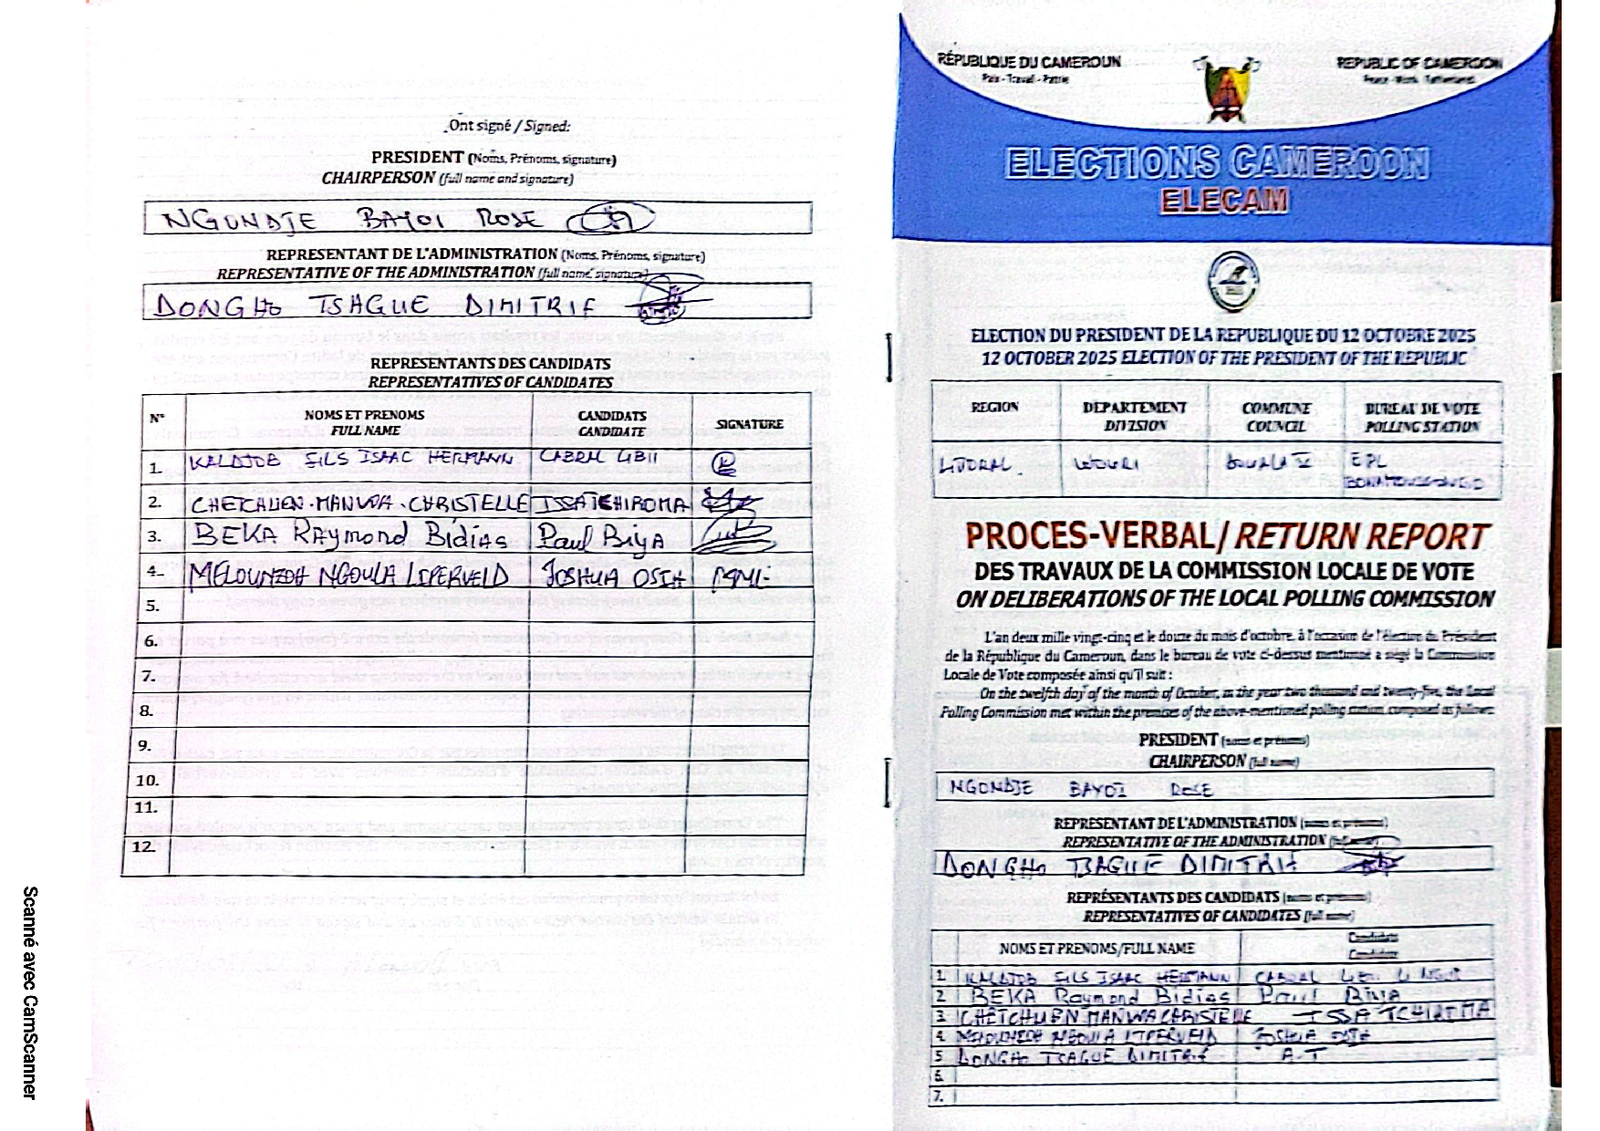 Ont signé / Signed:
PRESIDENT (Noms, Prénoms, signature)
CHAIRPERSON (full name and signature)
NGONDJE BAYOI ROSE
REPRESENTANT DE L'ADMINISTRATION (Noms, Prénoms, signature)
REPRESENTATIVE OF THE ADMINISTRATION (full name, signature)
DONGHO TSAGUE DIMITRIE
REPRESENTANTS DES CANDIDATS
REPRESENTATIVES OF CANDIDATES
N° NOMS ET PRENOMS FULL NAME CANDIDATS CANDIDATE SIGNATURE
1. KALDJOB FILS ISAAC HERMANN CABRAL LIBII
2. CHETCHUEN MANWA CHRISTELLE ISSA TCHIROMA
3. BEKA Raymond Bidias Paul Biya
4. NGOULA JOSHUA OSIH
5.
6.
7.
8.
9.
10.
11.
12.
RÉPUBLIQUE DU CAMEROUN
Paix - Travail - Patrie
REPUBLIC OF CAMEROON
Peace - Work - Fatherland
ELECTIONS CAMEROON
ELECAM
ELECTION DU PRESIDENT DE LA REPUBLIQUE DU 12 OCTOBRE 2025
12 OCTOBER 2025 ELECTION OF THE PRESIDENT OF THE REPUBLIC
REGION DEPARTEMENT DIVISION COMMUNE COUNCIL BUREAU DE VOTE POLLING STATION
LITTORAL WOURI DOUALA EPL
PROCES-VERBAL/ RETURN REPORT
DES TRAVAUX DE LA COMMISSION LOCALE DE VOTE
ON DELIBERATIONS OF THE LOCAL POLLING COMMISSION
L'an deux mille vingt-cinq et le douze du mois d'octobre, à l'occasion de l'élection du Président
de la République du Cameroun, dans le bureau de vote ci-dessus mentionné a siégé la Commission
Locale de Vote composée ainsi qu'il suit :
On the twelfth day of the month of October, in the year two thousand and twenty-five, the Local
Polling Commission met within the premises of the above-mentioned polling station, composed as follows:
PRESIDENT (noms et prénoms)
CHAIRPERSON (full name)
NGONDJE BAYOI ROSE
REPRESENTANT DE L'ADMINISTRATION (noms et prénoms)
REPRESENTATIVE OF THE ADMINISTRATION
DONGHO TSAGUE DIMITRIE
REPRÉSENTANTS DES CANDIDATS (noms et prénoms)
REPRESENTATIVES OF CANDIDATES (full name)
NOMS ET PRENOMS/FULL NAME Candidats Candidate
1. KALDJOB FILS ISAAC HERMANN CABRAL LIBII
2. BEKA Raymond Bidias Paul Biya
3. CHETCHUEN MANWA CHRISTELLE ISSA TCHIROMA
4. NGOULA JOSHUA OSIH
5 DONGHO TSAGUE DIMITRIE A.T
6.
7.
Scanné avec CamScanner